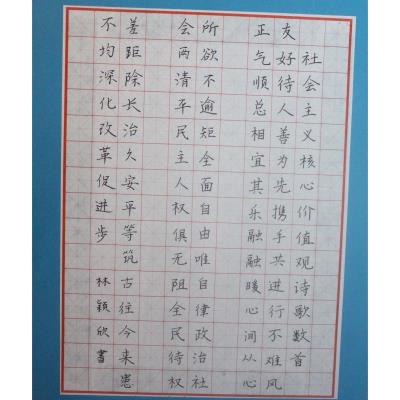 社会主义核心价值观诗歌数首
友好待人善为先携手共进行不难风
正气顺总相宜其乐融融暖心间从心
所欲不逾短全面自由唯自律政治社
会两清平民主人权俱无阻全民待权
差距除长治久安平等筑古往今来患
不均深化改革促进步
林颖欣書